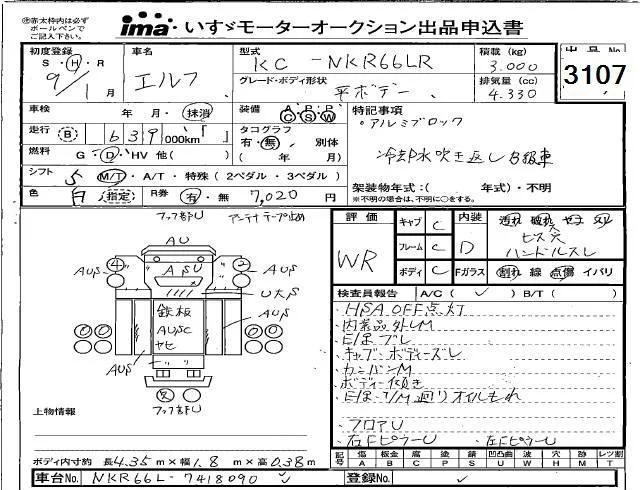 ㊟赤太枠内は必ず
ボールペンで
ご記入下さい。
ima いすゞモーターオークション出品申込書
初度登録 車名 型式 積載 (kg) 出品No
S・H・R エルフ KC-NKR66LR 3.000 3107
9/1月 グレード・ボディ形状 排気量 (cc)
平ボデー 4.330
車検 年 月・抹消 装備 A・P・P C S W 特記事項
・アルミブロック
走行 B 639,000km タコグラフ
有・無 別体
燃料 G・D・HV 他( ) ( 年 月) 冷却水吹き返しB級車
シフト 5 M/T・A/T・特殊(2ペダル・3ペダル)
色 白 指定 R券 有・無 7,020 円 架装物年式:( 年式)・不明
※不明の場合は、不明に○をする。
フック部U アンテナテープ止め
評価 キャブ C 内装 汚れ 破れ
WR フレーム C D ビス穴
ハンドルスレ
ボディ C Fガラス 割れ 線 点傷 イバリ
AU
4 2
AUS AUS
ASU
U大S
鉄板 AUS
AUSC
ヤヒ
AUS
フック部U
検査員報告 A/C( ✓ ) B/T( )
・HSA OFF点灯
・内装品外しM
・E/Gブレ
・キャブ・ボディーズレ
・カンバンM
・ボディー傾き
・E/G・T/M廻りオイルもれ
・フロアU
・右FピラーU ・左FピラーU
上物情報
記号 傷 板金 腐 塗 錆 凹凸曲 波 穴 跡 レツ割
A B C P S U W H M T
ボディ内寸約 長4.35m×幅1.8m×高0.38m
車台No. NKR66L-7418090 登録No.